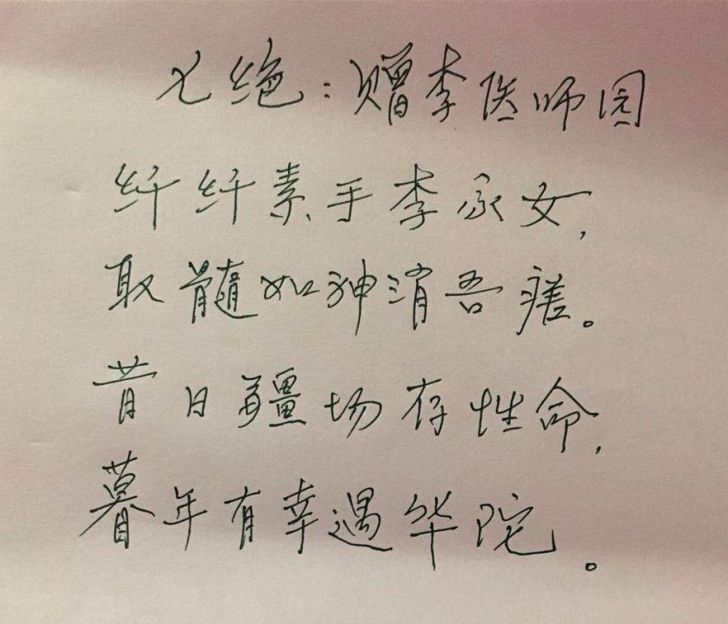 七绝：赠李医师园
纤纤素手李家女，
取髓如神消吾瘥。
昔日疆场存性命，
暮年有幸遇华陀。